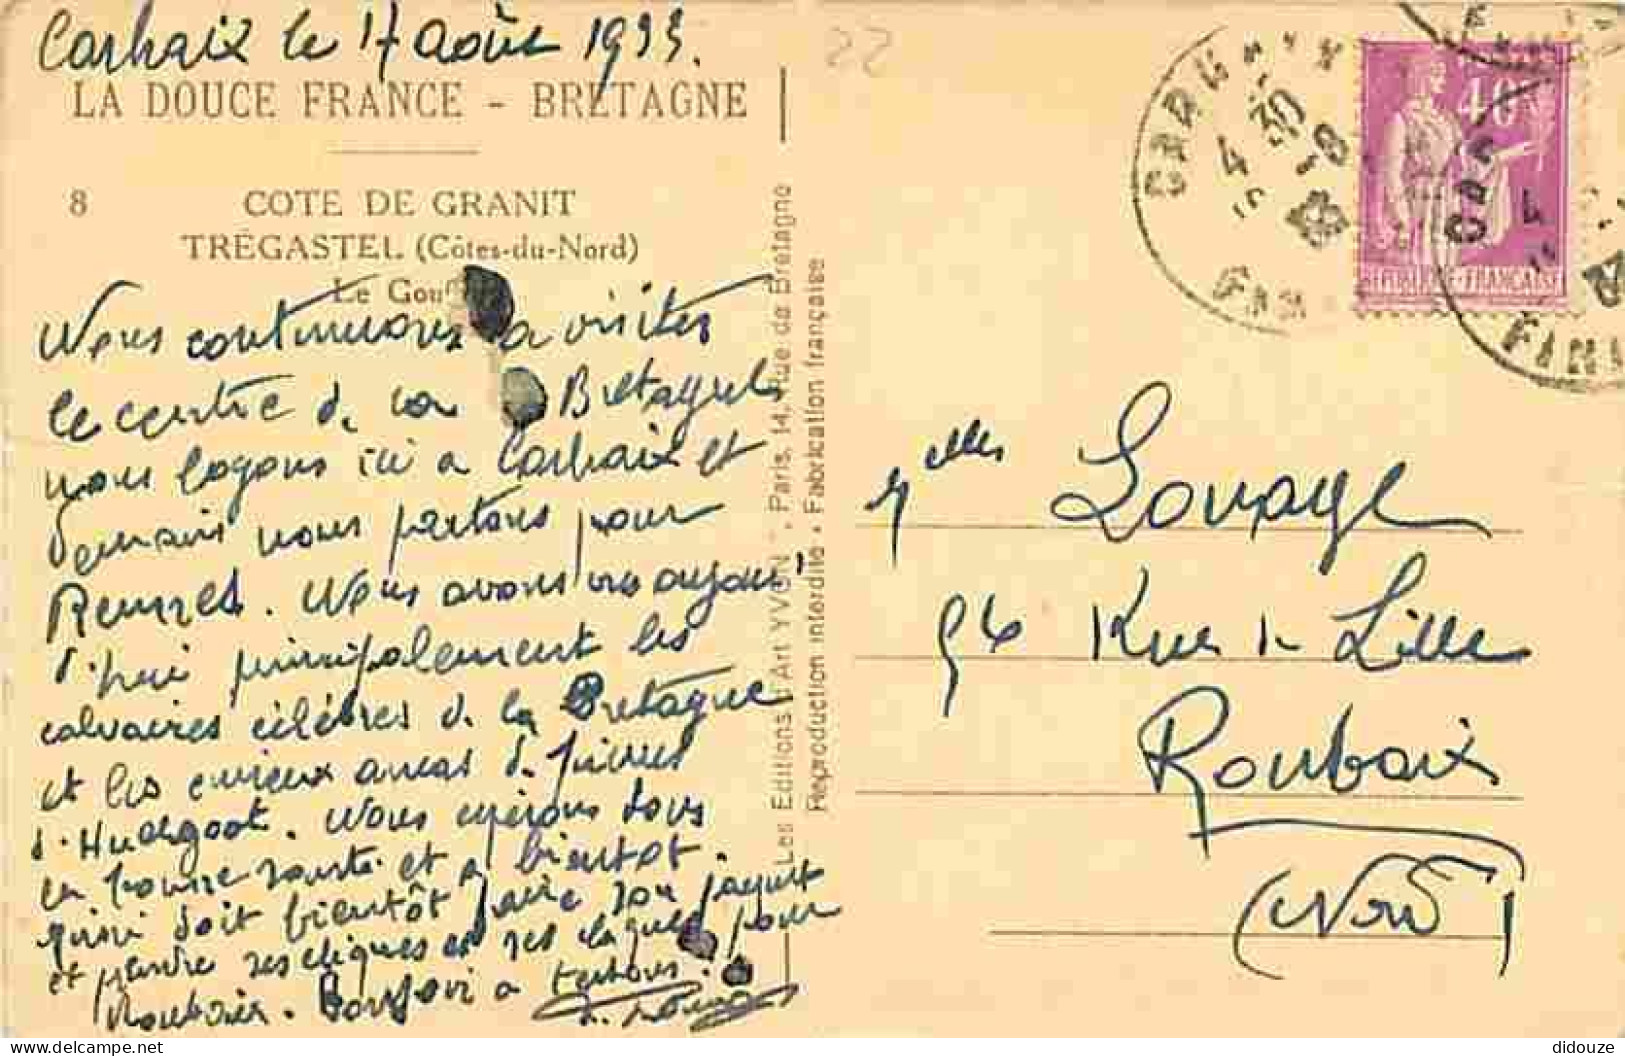 Carhaix le 17 août 1933.
LA DOUCE FRANCE - BRETAGNE
8 COTE DE GRANIT
TRÉGASTEL (Côtes-du-Nord)
Le Gou
Nous continuons a visiter
le centre de la Bretagne
nous logons ici a Carhaix et
demain nous partons pour
Rennes. Nous avons vu aujour
d'hui principalement les
calvaires célèbres de la Bretagne
et les curieux amas de pierres
d'Huelgoat. Nous espérons tous
en bonne santé et a bientot.
doit bientôt faire son paquet
et prendre ses cliques et ses claques pour
Roubaix. Bonjour a tertous.
Les Editions d'Art YVON", Paris, 14, Rue de Bretagne
Reproduction interdite • Fabrication française
22
4 30
-8
FIN
40
REPUBLIQUE-FRANÇAISE
CAR
4
FINI
Melles Lovage
56 Rue de Lille
Roubaix
(Nord)
delcampe.net
didouze